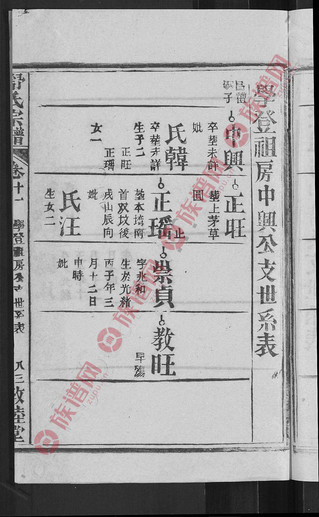 學登祖房中興公支世系表
中興
正旺
卒葬未詳
妣
氏韓
卒葬未詳
生子二
正旺
正瑤
女一
葬上茅草
止
正瑤
葬本塆南
首双坟後
戌山辰向
妣
氏汪
生女二
崇貞
字兆和
生於光緒
丙子年三
月十二日
申時
妣
教旺
早殤
氏宗譜
卷十一
學登祖房
支世系表
敦睦堂
族谱网